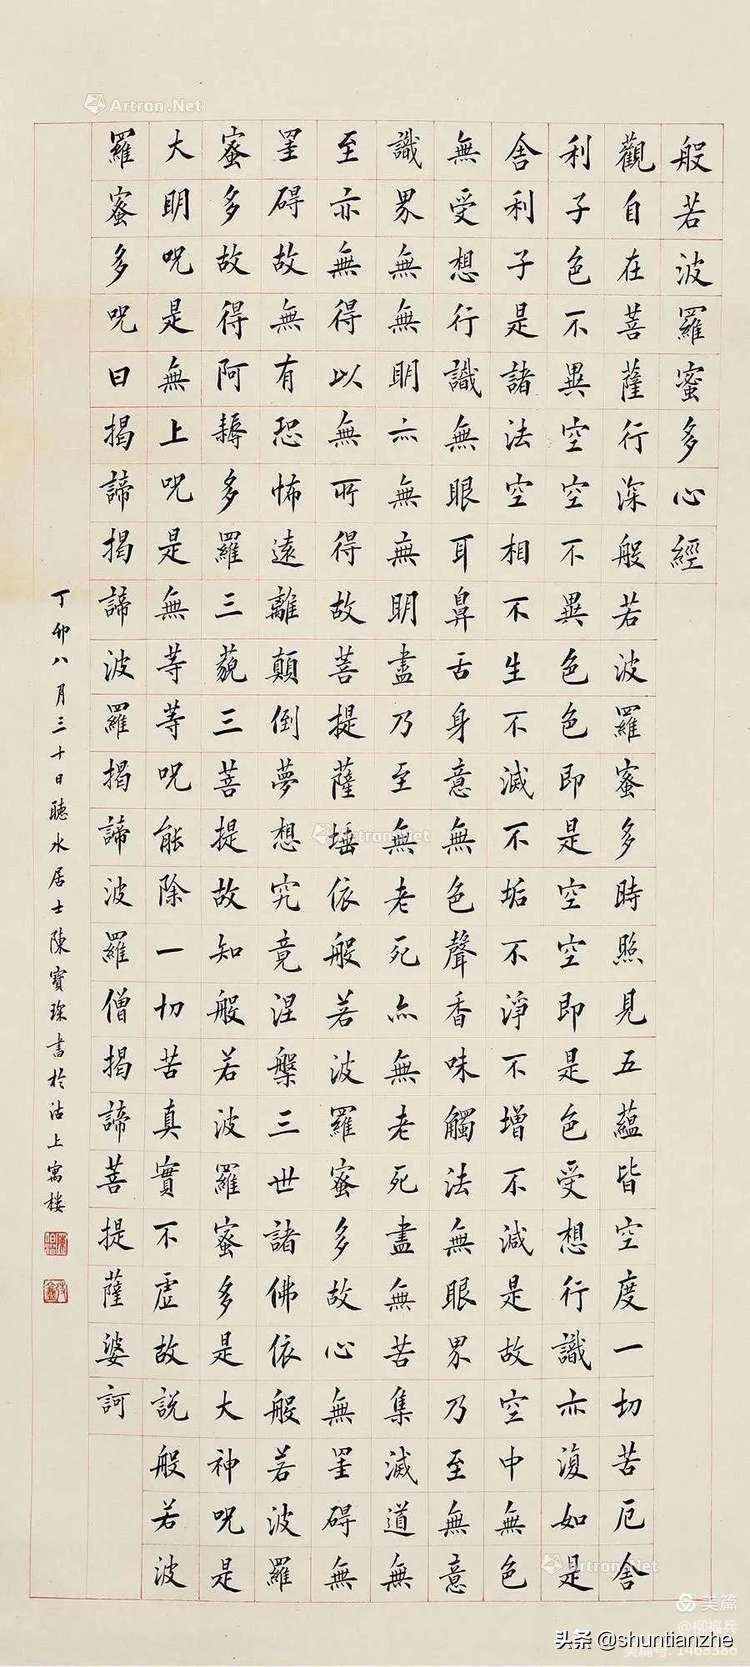 般若波羅蜜多心經
觀自在菩薩行深般若波羅蜜多時照見五蘊皆空度一切苦厄舍
利子色不異空空不異色色即是空空即是色受想行識亦復如是
舍利子是諸法空相不生不滅不垢不淨不增不減是故空中無色
無受想行識無眼耳鼻舌身意無色聲香味觸法無眼界乃至無意
識界無無明亦無無明盡乃至無老死亦無老死盡無苦集滅道無
至亦無得以無所得故菩提薩埵依般若波羅蜜多故心無罣碍無
罣碍故無有恐怖遠離顛倒夢想究竟涅槃三世諸佛依般若波羅
蜜多故得阿耨多羅三藐三菩提故知般若波羅蜜多是大神咒是
大明咒是無上咒是無等等咒能除一切苦真實不虛故說般若波
羅蜜多咒曰揭諦揭諦波羅揭諦波羅僧揭諦菩提薩婆訶
丁卯八月三十日聽水居士陳寶琛書於沽上寓樓
Artron.Net
Artron.Net
Artron.Net
美篇
头条 @shuntianzhe